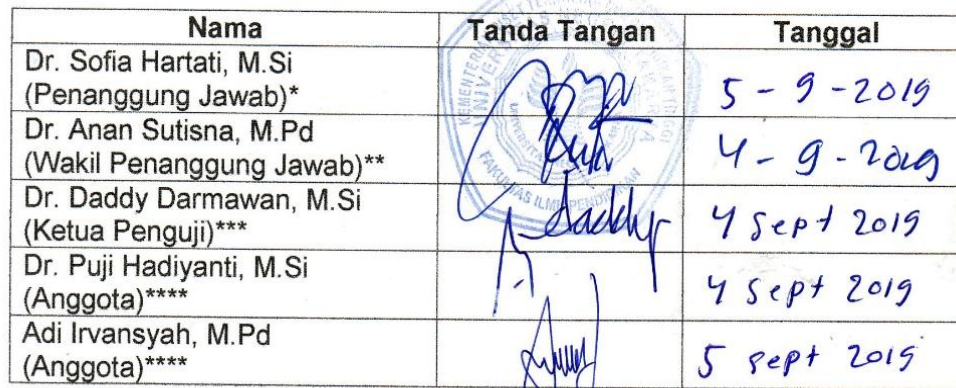 Nama Tanda Tangan Tanggal
Dr. Sofia Hartati, M.Si
(Penanggung Jawab)* 5 - 9 - 2019
Dr. Anan Sutisna, M.Pd
(Wakil Penanggung Jawab)** 4 - 9 - 2019
Dr. Daddy Darmawan, M.Si
(Ketua Penguji)*** daddy 4 Sept 2019
Dr. Puji Hadiyanti, M.Si
(Anggota)**** 4 Sept 2019
Adi Irvansyah, M.Pd
(Anggota)**** 5 sept 2019
FAKULTAS ILMU PENDIDIKAN